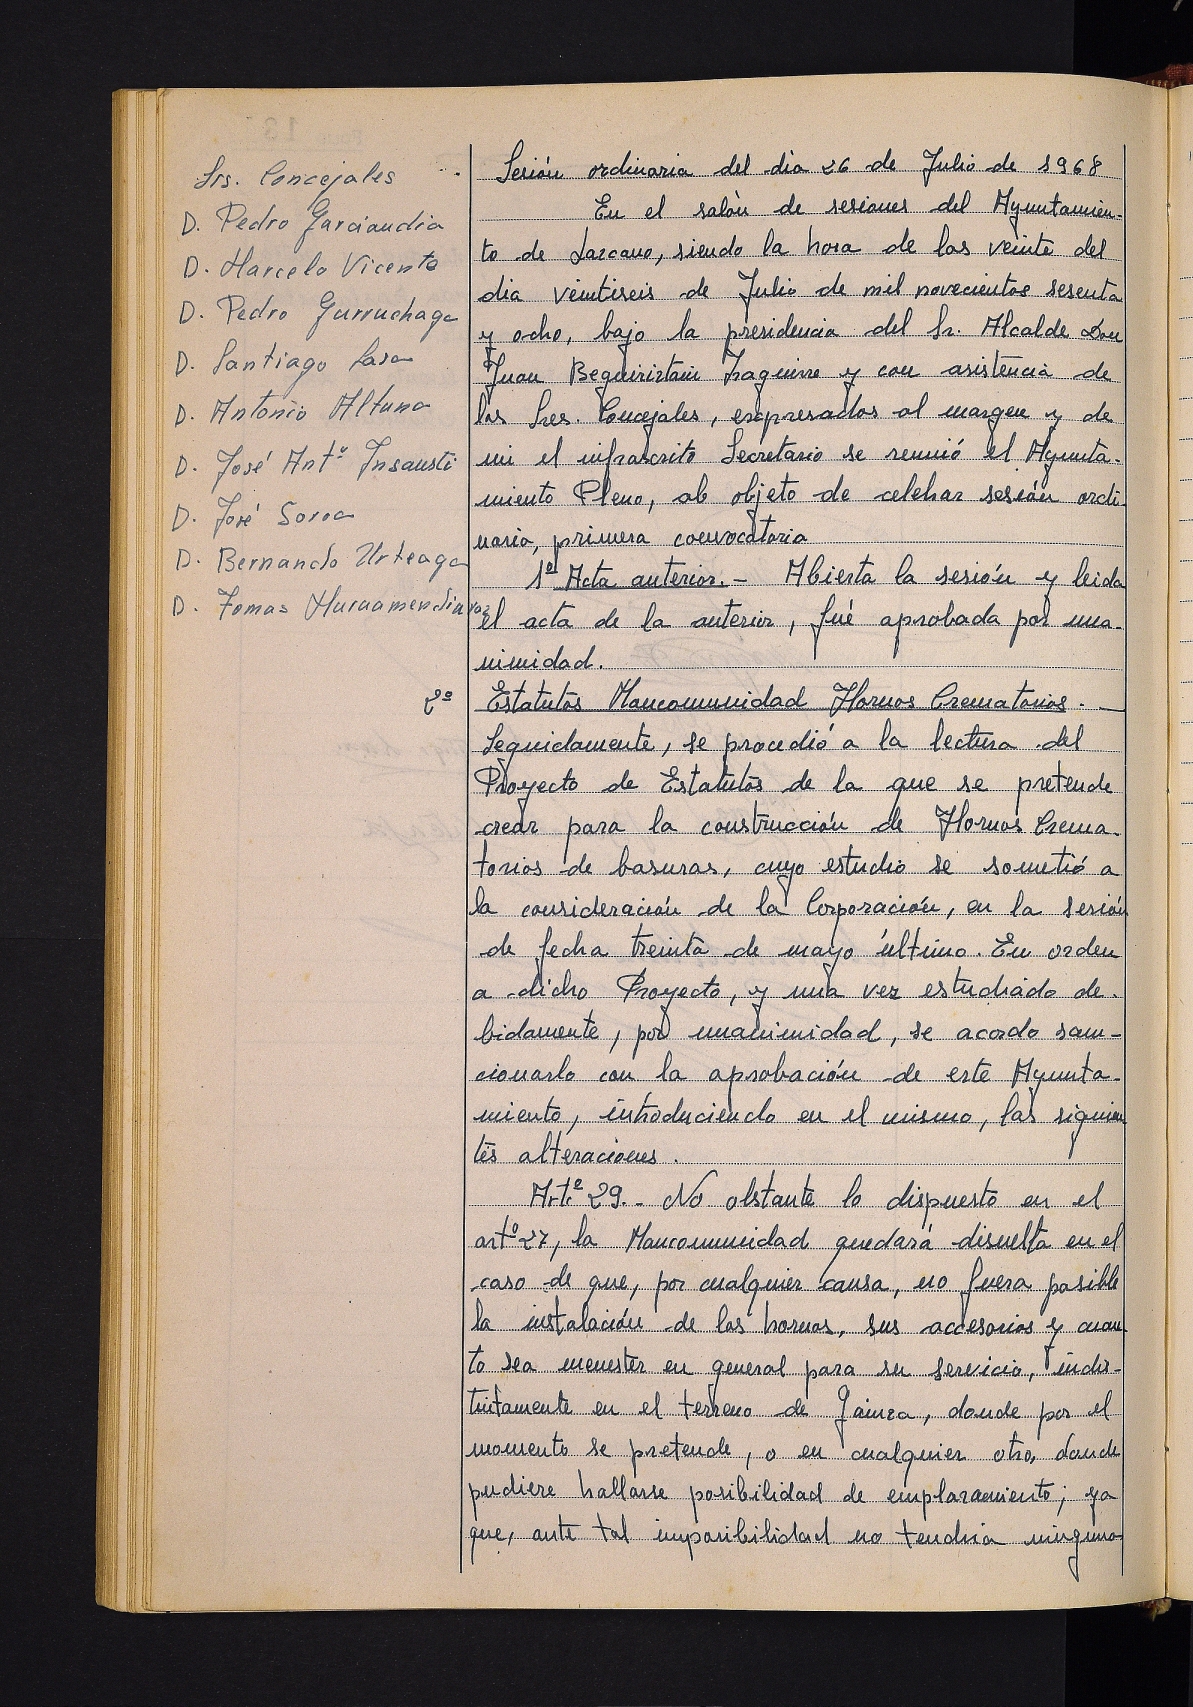 Srs. Concejales
D. Pedro Garciandia
D. Marcelo Vicente
D. Pedro Gurruchaga
D. Santiago Lasa
D. Antonio Altuna
D. José Antº Insausti
D. José Soroa
D. Bernardo Urteaga
D. Tomas Muruamendiaraz
Sesión ordinaria del dia 26 de Julio de 1968
En el salón de sesiones del Ayuntamien-
to de Lazcano, siendo la hora de las veinte del
dia veintiseis de Julio de mil novecientos sesenta
y ocho, bajo la presidencia del Sr. Alcalde Don
Juan Beguiristain Iraguirre y con asistencia de
los Sres. Concejales, expresados al margen y de
mi el infrascrito Secretario se reunió el Ayunta-
miento Pleno, al objeto de celebrar sesión ordi-
naria, primera convocatoria
1º Acta anterior.- Abierta la sesión y leida
el acta de la anterior, fué aprobada por una-
nimidad.
2º Estatutos Mancomunidad Hornos Crematorios.-
Seguidamente, se procedió a la lectura del
Proyecto de Estatutos de la que se pretende
crear para la construcción de Hornos Crema-
torios de basuras, cuyo estudio se sometió a
la consideración de la Corporación, en la sesión
de fecha treinta de mayo último. En orden
a dicho Proyecto, y una vez estudiado de-
bidamente, por unanimidad, se acordo san-
cionarlo con la aprobación de este Ayunta-
miento, introduciendo en el mismo, las siguien
tes alteraciones.
Artº 29.- No obstante lo dispuesto en el
artº 27, la Mancomunidad quedará disuelta en el
caso de que, por cualquier causa, no fuera posible
la instalación de los hornos, sus accesorios y cuan-
to sea menester en general para su servicio, indis-
tintamente en el terreno de Gainza, donde por el
momento se pretende, o en cualquier otro, donde
pudiere hallarse posibilidad de emplazamiento; ya
que, ante tal imposibilidad no tendria ninguna